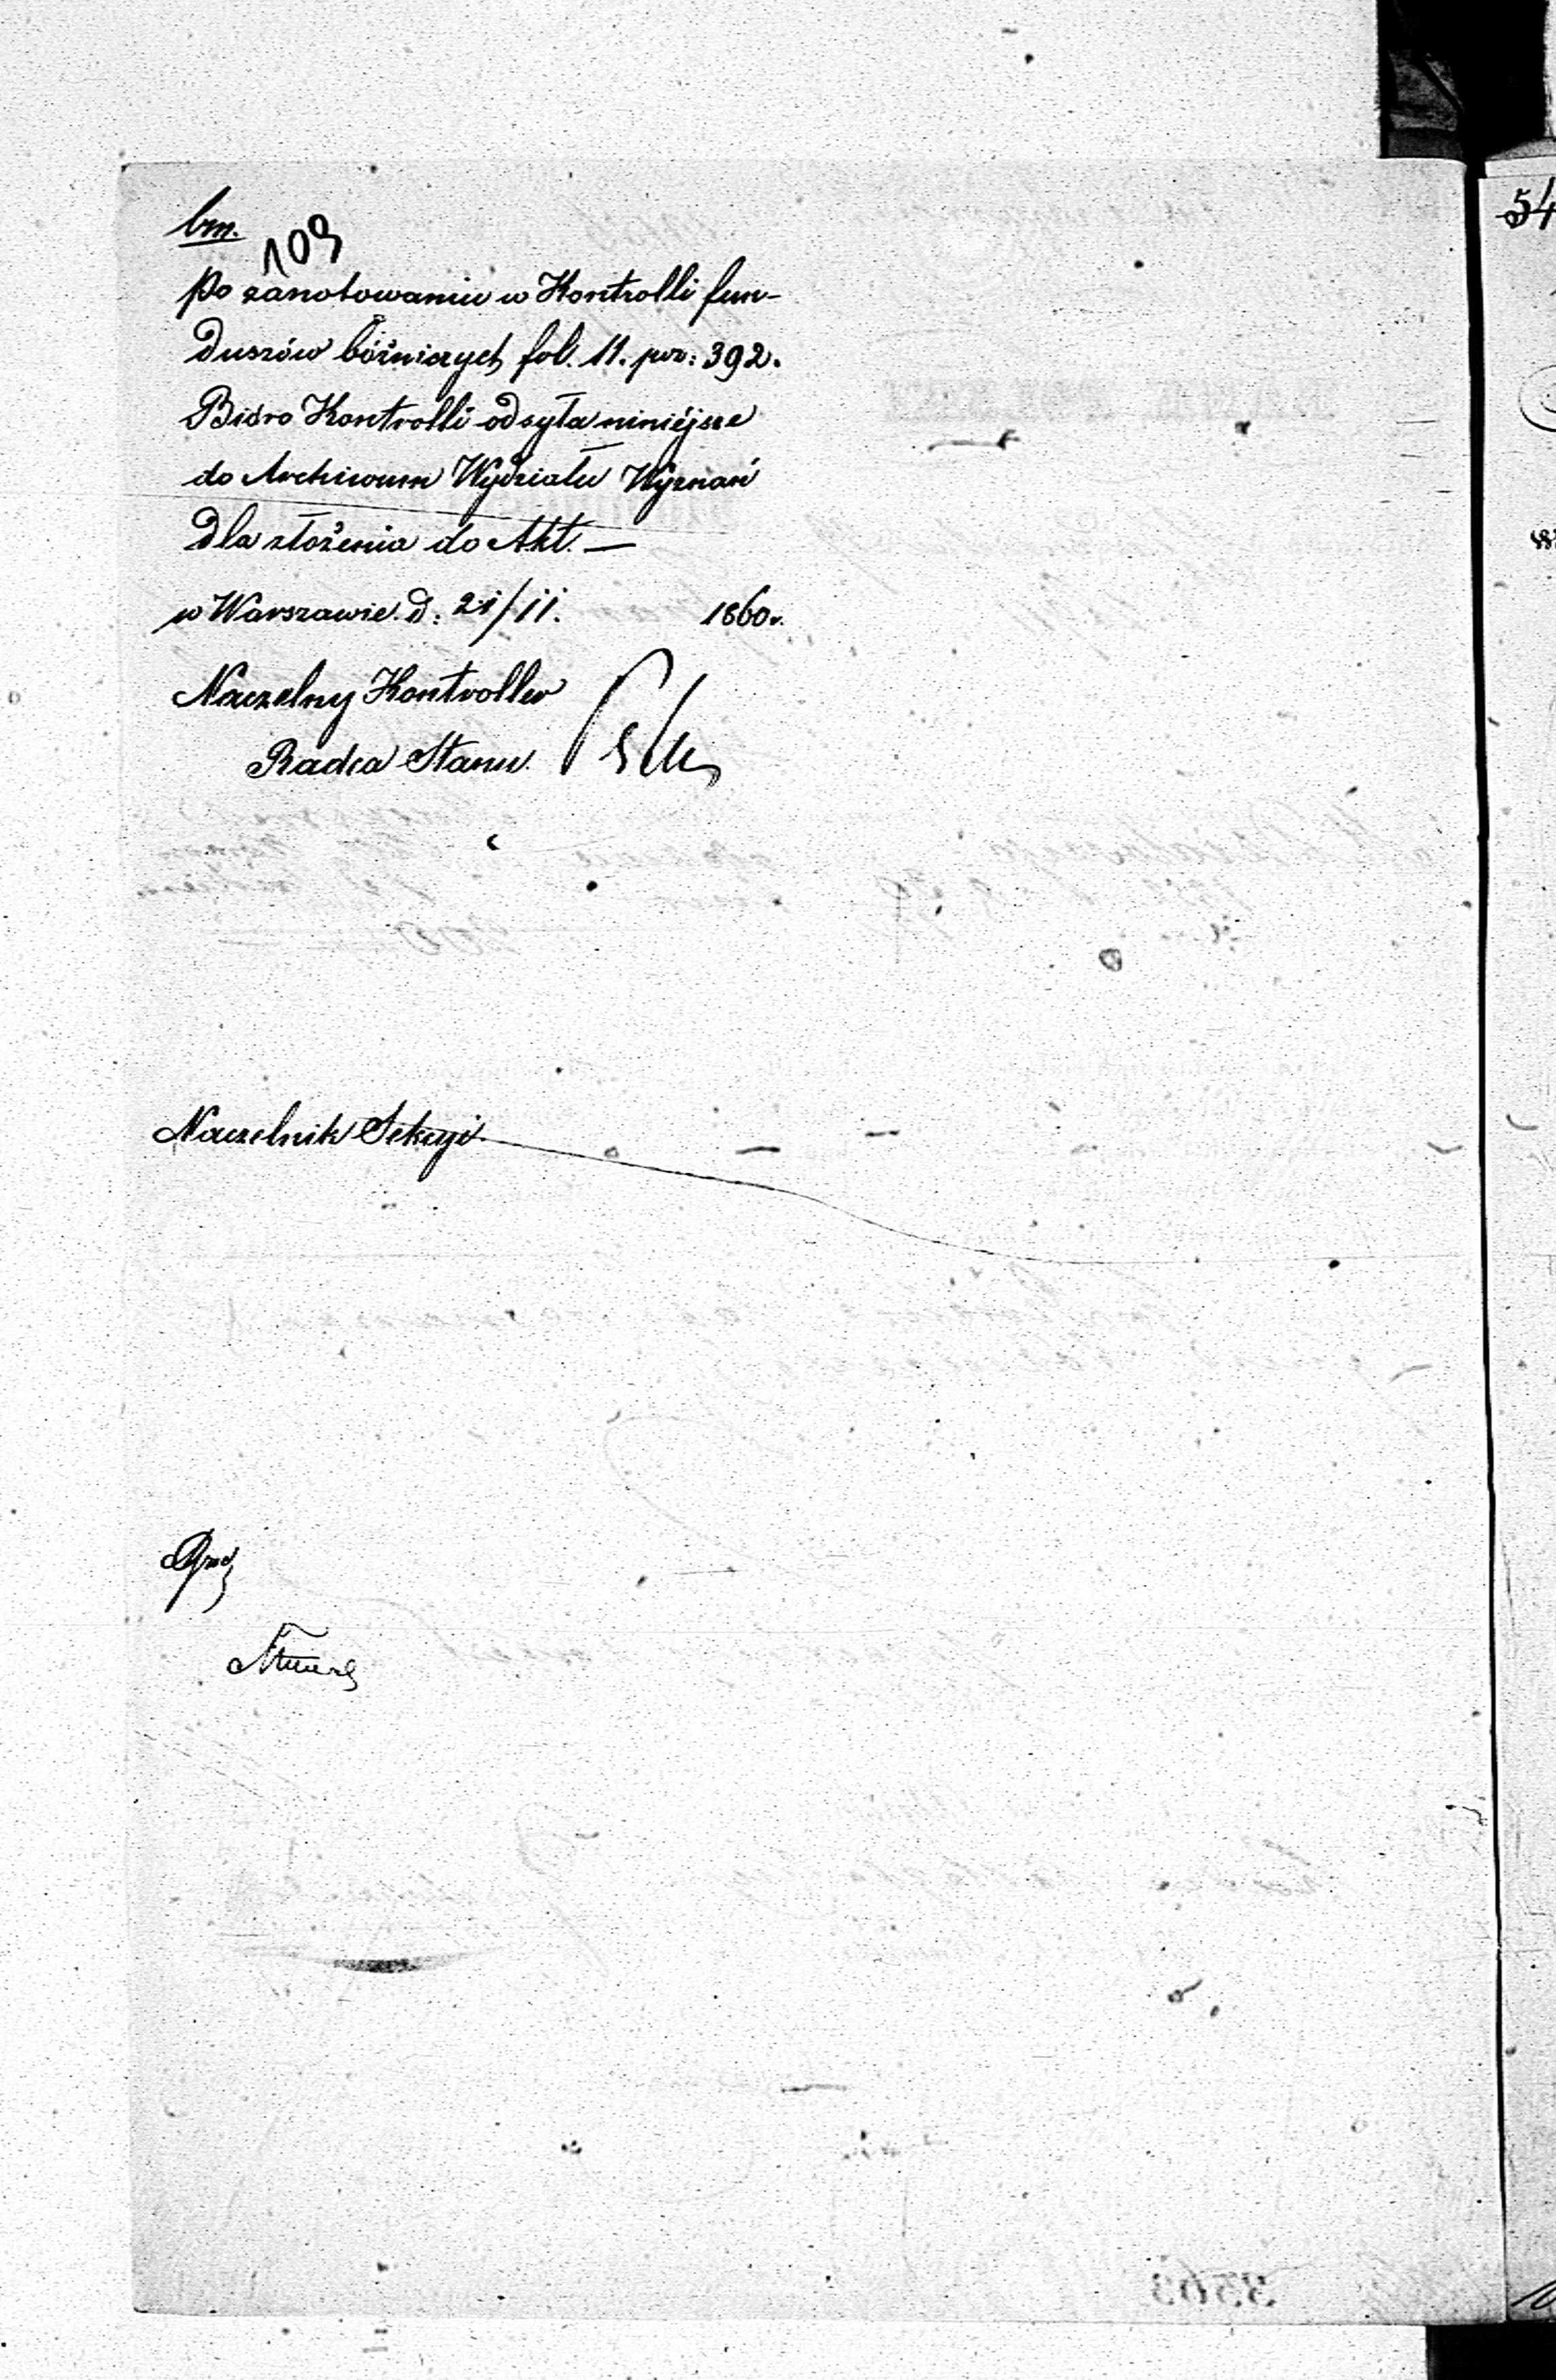 bm.
109
Po zanotowaniu w Kontrolli fun-
duszów bóżniczych fol. 11. poz: 392.
Bióro Kontrolli odsyła niniéjsze
do Archiwum Wydziału Wyznań
dla złożenia do Akt. —
w Warszawie. d: 21/11. 1860r.
Naczelny Kontroller
Radca Stanu
Naczelnik Sekcyi
54
3563